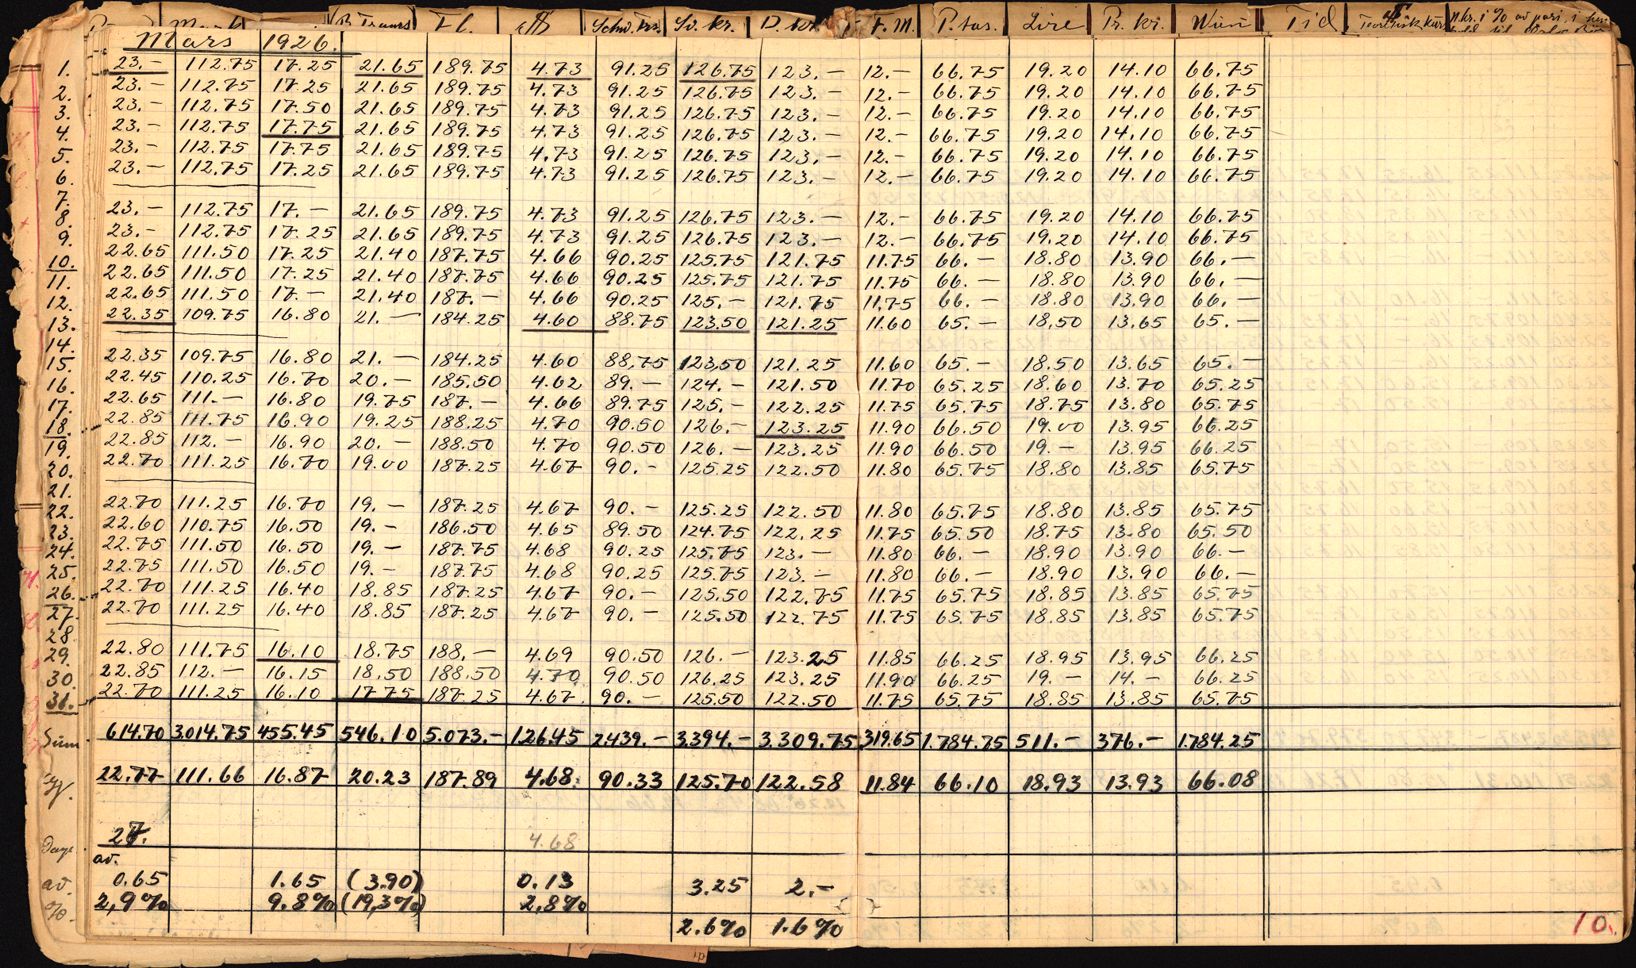 B. Francs Fl. $ Schw. frs. Sv. kr. D. kr. F. M. P. tas. Lire Pr. kr. Wien Tid
Mars 1926.
1. 23.- 112.75 17.25 21.65 189.75 4.73 91.25 126.75 123.- 12.- 66.75 19.20 14.10 66.75
2. 23.- 112.75 17.25 21.65 189.75 4.73 91.25 126.75 123.- 12.- 66.75 19.20 14.10 66.75
3. 23.- 112.75 17.50 21.65 189.75 4.73 91.25 126.75 123.- 12.- 66.75 19.20 14.10 66.75
4. 23.- 112.75 17.75 21.65 189.75 4.73 91.25 126.75 123.- 12.- 66.75 19.20 14.10 66.75
5. 23.- 112.75 17.75 21.65 189.75 4.73 91.25 126.75 123.- 12.- 66.75 19.20 14.10 66.75
6. 23.- 112.75 17.25 21.65 189.75 4.73 91.25 126.75 123.- 12.- 66.75 19.20 14.10 66.75
7.
8. 23.- 112.75 17.- 21.65 189.75 4.73 91.25 126.75 123.- 12.- 66.75 19.20 14.10 66.75
9. 23.- 112.75 17.25 21.65 189.75 4.73 91.25 126.75 123.- 12.- 66.75 19.20 14.10 66.75
10. 22.65 111.50 17.25 21.40 187.75 4.66 90.25 125.75 121.75 11.75 66.- 18.80 13.90 66.-
11. 22.65 111.50 17.25 21.40 187.75 4.66 90.25 125.75 121.75 11.75 66.- 18.80 13.90 66.-
12. 22.65 111.50 17.- 21.40 187.- 4.66 90.25 125.- 121.75 11.75 66.- 18.80 13.90 66.-
13. 22.35 109.75 16.80 21.- 184.25 4.60 88.75 123.50 121.25 11.60 65.- 18.50 13.65 65.-
14.
15. 22.35 109.75 16.80 21.- 184.25 4.60 88.75 123.50 121.25 11.60 65.- 18.50 13.65 65.-
16. 22.45 110.25 16.70 20.- 185.50 4.62 89.- 124.- 121.50 11.70 65.25 18.60 13.70 65.25
17. 22.65 111.- 16.80 19.75 187.- 4.66 89.75 125.- 122.25 11.75 65.75 18.75 13.80 65.75
18. 22.85 111.75 16.90 19.25 188.25 4.70 90.50 126.- 123.25 11.90 66.50 19.00 13.95 66.25
19. 22.85 112.- 16.90 20.- 188.50 4.70 90.50 126.- 123.25 11.90 66.50 19.- 13.95 66.25
20. 22.70 111.25 16.70 19.00 187.25 4.67 90.- 125.25 122.50 11.80 65.75 18.80 13.85 65.75
21.
22. 22.70 111.25 16.70 19.- 187.25 4.67 90.- 125.25 122.50 11.80 65.75 18.80 13.85 65.75
23. 22.60 110.75 16.50 19.- 186.50 4.65 89.50 124.75 122.25 11.75 65.50 18.75 13.80 65.50
24. 22.75 111.50 16.50 19.- 187.75 4.68 90.25 125.75 123.- 11.80 66.- 18.90 13.90 66.-
25. 22.75 111.50 16.50 19.- 187.75 4.68 90.25 125.75 123.- 11.80 66.- 18.90 13.90 66.-
26. 22.70 111.25 16.40 18.85 187.25 4.67 90.- 125.50 122.75 11.75 65.75 18.85 13.85 65.75
27. 22.70 111.25 16.40 18.85 187.25 4.67 90.- 125.50 122.75 11.75 65.75 18.85 13.85 65.75
28
29. 22.80 111.75 16.10 18.75 188.- 4.69 90.50 126.- 123.25 11.85 66.25 18.95 13.95 66.25
30. 22.85 112.- 16.15 18.50 188.50 4.70 90.50 126.25 123.25 11.90 66.25 19.- 14.- 66.25
31. 22.70 111.25 16.10 17.75 187.25 4.67 90.- 125.50 122.50 11.75 65.75 18.85 13.85 65.75
Sum 614.70 3.014.75 455.45 546.10 5.073.- 126.45 2.439.- 3.394.- 3.309.75 319.65 1.784.75 511.- 376.- 1.784.25
22.77 111.66 16.87 20.23 187.89 4.68 90.33 125.70 122.58 11.84 66.10 18.93 13.93 66.08
Dage 27. 4.68
av.
av. 0.65 1.65 (3.90) 0.13 3.25 2.-
%. 2,9% 9.8% (19,3%) 2,8%
2.6% 1.6%
10.